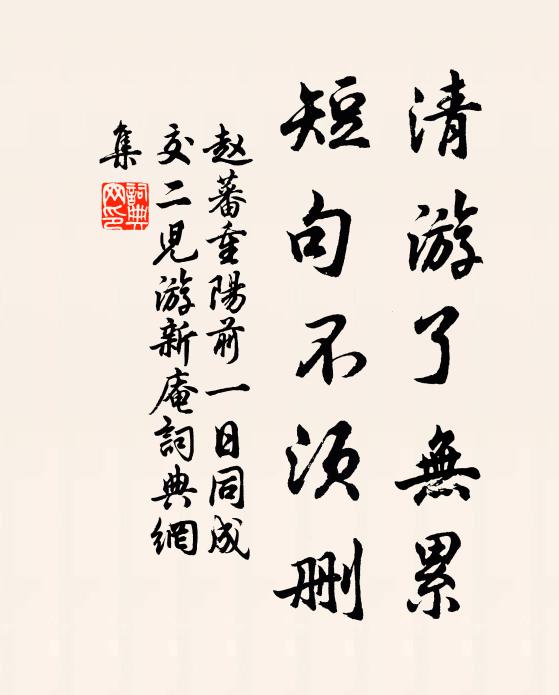 清游了無累
短句不須刪
赵蕃重陽前一日同成
父二児游新庵詞典網
集
詞典
网印